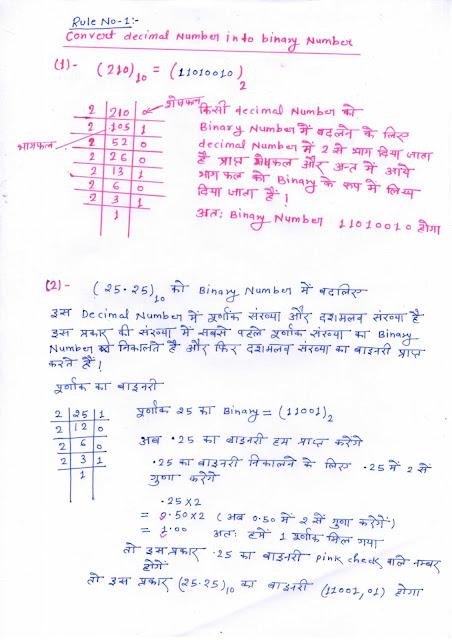 Rule No-1:-
Convert decimal Number into binary Number
(1)- (210)10 = (11010010)2
2 210 0 शेषफल
2 105 1
2 52 0
2 26 0
2 13 1
2 6 0
2 3 1
1
भागफल
किसी decimal Number को
Binary Number में बदलने के लिए
decimal Number में 2 से भाग दिया जाता
है प्राप्त शेषफल और अन्त में आये
भागफल को Binary के रूप में लिख
दिया जाता है!
अतः Binary Number 11010010 होगा
(2)- (25.25)10 को Binary Number में बदलिए
इस Decimal Number में पूर्णांक संख्या और दशमलव संख्या है
इस प्रकार की संख्या में सबसे पहले पूर्णांक संख्या का Binary
Number को निकालते है और फिर दशमलव संख्या का बाइनरी प्राप्त
करते हैं!
पूर्णांक का बाइनरी
2 25 1
2 12 0
2 6 0
2 3 1
1
पूर्णांक 25 का Binary = (11001)2
अब .25 का बाइनरी हम प्राप्त करेंगे
.25 का बाइनरी निकालने के लिए .25 में 2 से
गुणा करेंगे
.25 x 2
= 0.50x2 (अब 0.50 में 2 से गुणा करेगें)
= 1.00 अतः हमें 1 पूर्णांक मिल गया
तो इस प्रकार .25 का बाइनरी pink check वाले नम्बर
होगें
तो इस प्रकार (25.25)10 का बाइनरी (11001,01) होगा